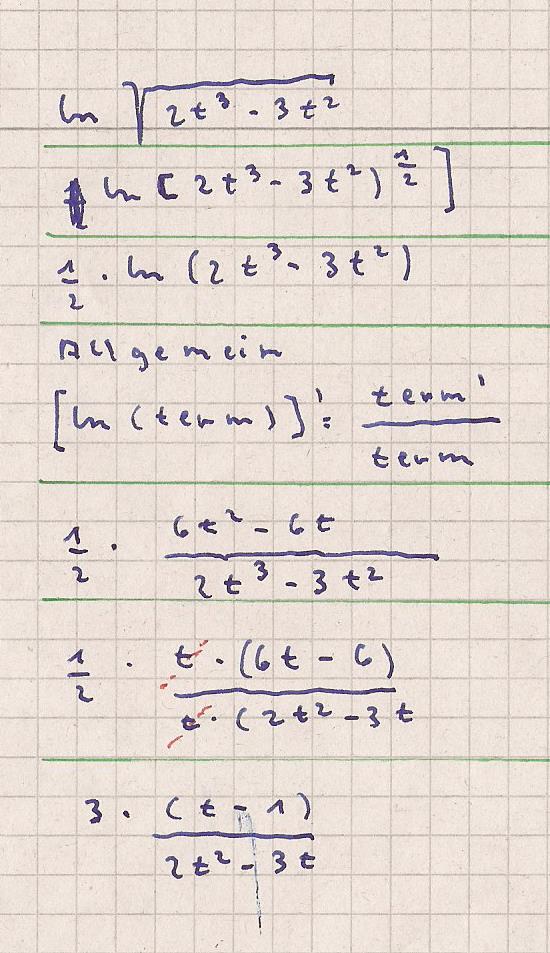 ln √(2t³ - 3t²)
ln [2t³ - 3t²)^(1/2)]
1/2 · ln (2t³ - 3t²)
Allgemein
[ln (term)]' = term' / term
1/2 · (6t² - 6t) / (2t³ - 3t²)
1/2 · t · (6t - 6) / t · (2t² - 3t
3 · (t - 1) / (2t² - 3t)